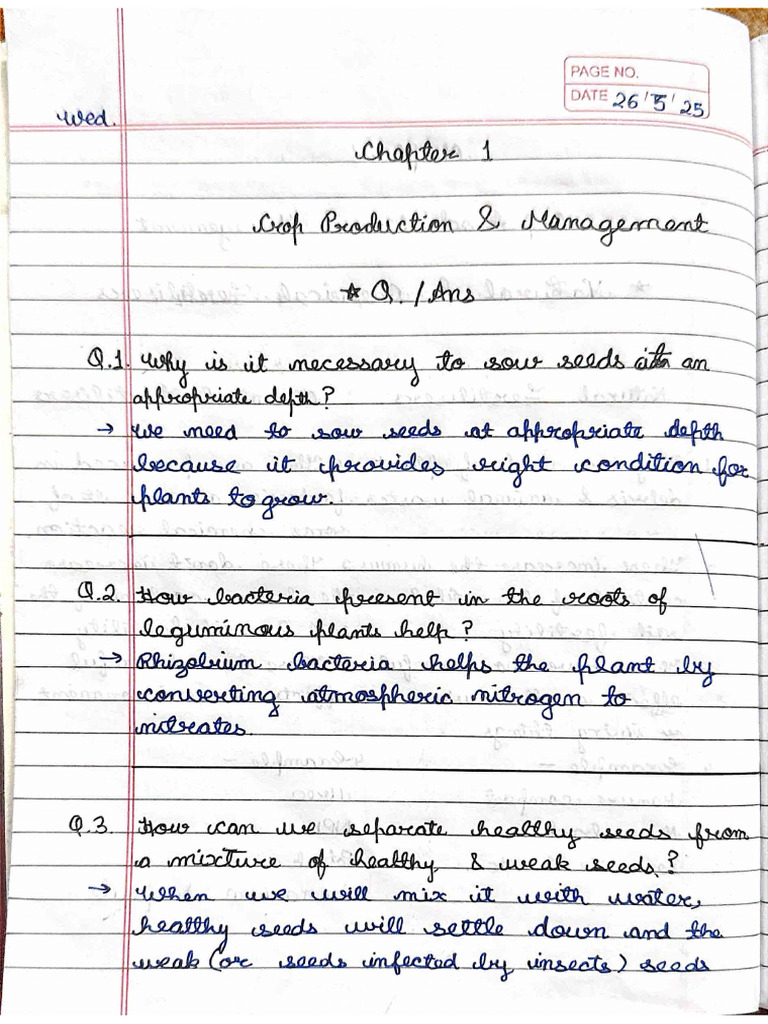 PAGE NO.
DATE 26/5/25
Wed.
Chapter 1
Crop Production & Management
* Q. /Ans
Q.1. Why is it necessary to sow seeds at an
appropriate depth?
→ We need to sow seeds at appropriate depth
because it provides right condition for
plants to grow.
Q.2. How bacteria present in the roots of
leguminous plants help?
→ Rhizobium bacteria helps the plant by
converting atmospheric nitrogen to
nitrates.
Q.3. How can we separate healthy seeds from
a mixture of healthy & weak seeds?
→ When we will mix it with water,
healthy seeds will settle down and the
weak (or seeds infected by insects) seeds